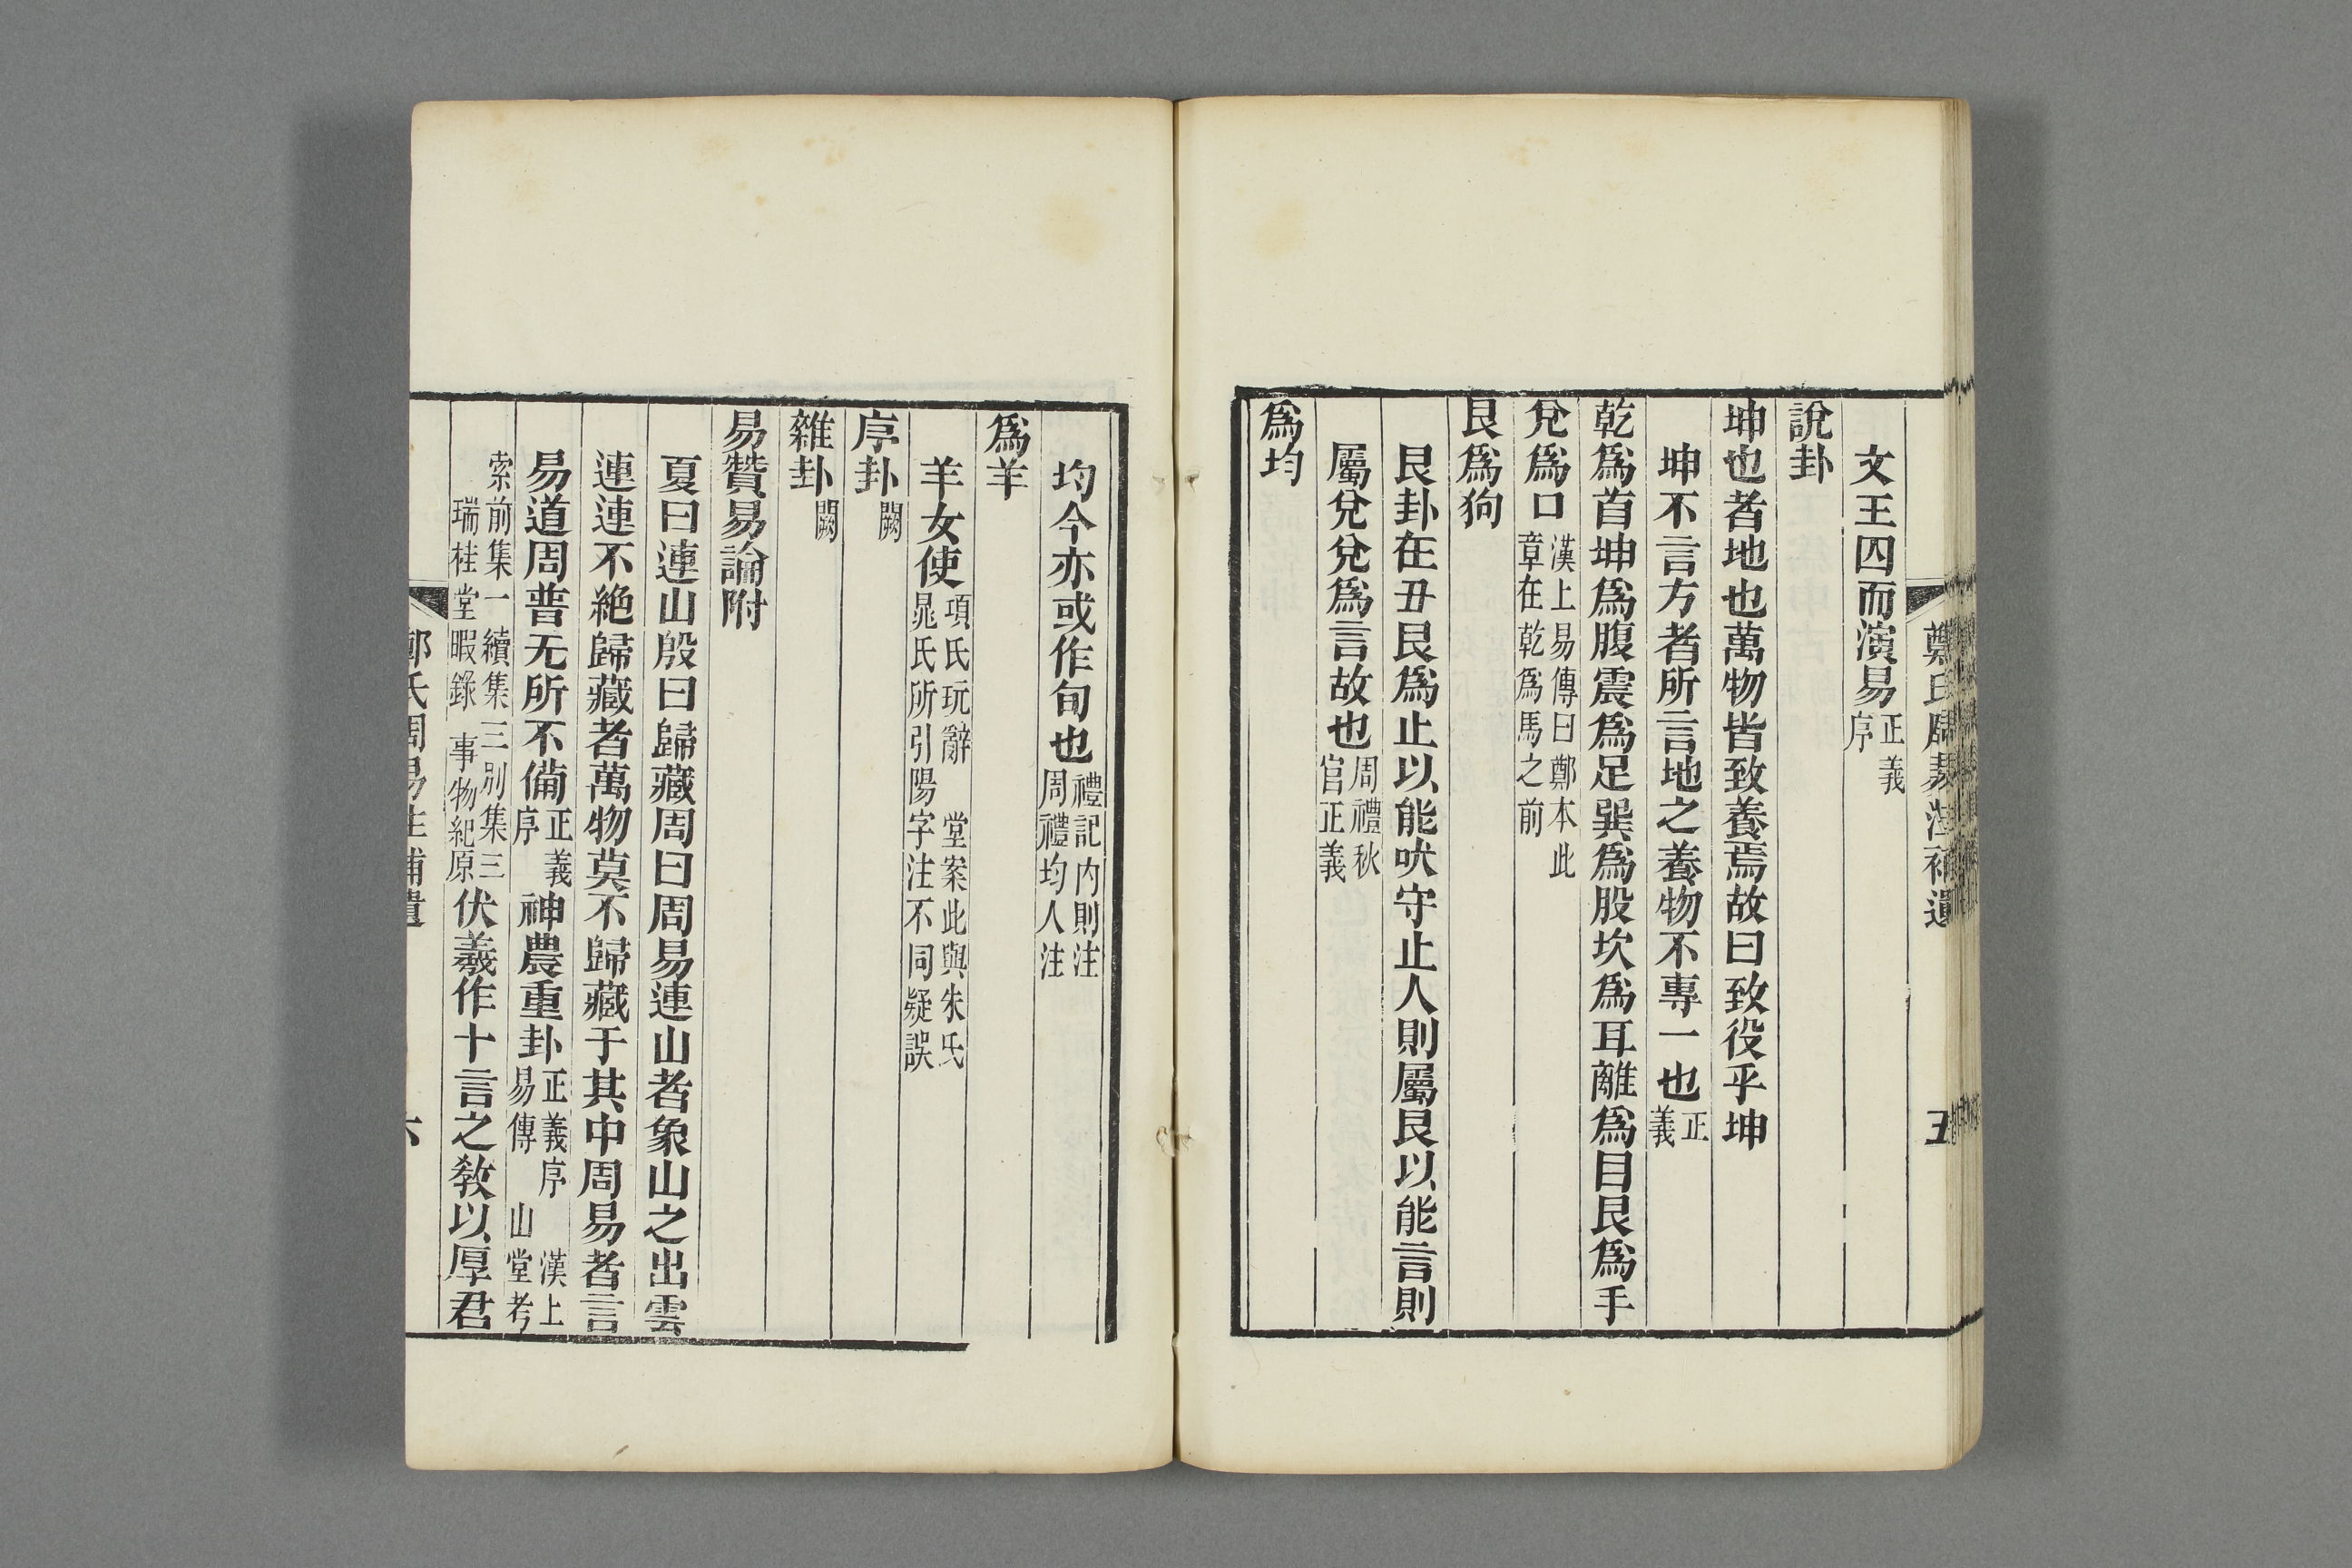 鄭氏周易注補遺
五
文王囚而演易正義序
說卦
坤也者地也萬物皆致養焉故曰致役乎坤
坤不言方者所言地之養物不專一也正義
乾爲首坤爲腹震爲足巽爲股坎爲耳離爲目艮爲手
兌爲口漢上易傳曰鄭本此章在乾爲馬之前
艮爲狗
艮卦在丑艮爲止以能吠守止人則屬艮以能言則
屬兌兌爲言故也周禮秋官正義
爲均
均今亦或作旬也禮記內則注周禮均人注
爲羊
羊女使項氏玩辭 堂案此與朱氏晁氏所引陽字注不同疑誤
序卦闕
雜卦闕
易贊易論附
夏曰連山殷曰歸藏周曰周易連山者象山之出雲
連連不絶歸藏者萬物莫不歸藏于其中周易者言
易道周普无所不備正義序神農重卦正義序 漢上易傳 山堂考
索前集一續集三別集三瑞桂堂暇錄 事物紀原伏羲作十言之敎以厚君
鄭氏周易注補遺
六